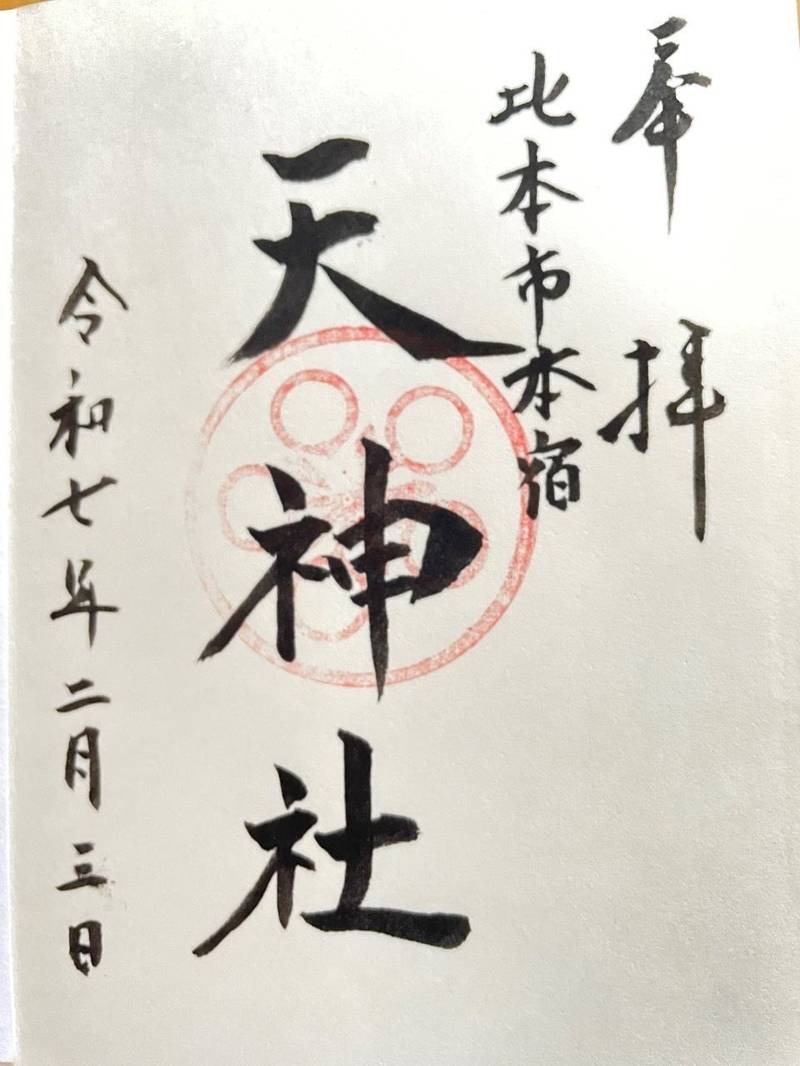 奉拝
北本市本宿
天神社
令和七年二月三日